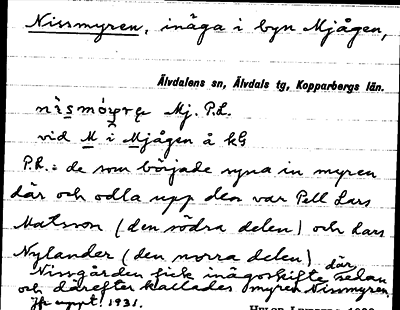 Nissmyren, inäga i byn Mjågen,
Älvdalens sn, Älvdals tg, Kopparbergs län.
Mj. P.L.
vid M i Mjågen å kG
P.L.: de som började syna in myren
där och odla upp den var Pell Lars
Matsson (den södra delen) och Lars
Nylander (den norra delen)
Nissgården fick inägoskifte där sedan
och därefter kallades myren Nissmyren.
Jfr uppt. 1931.